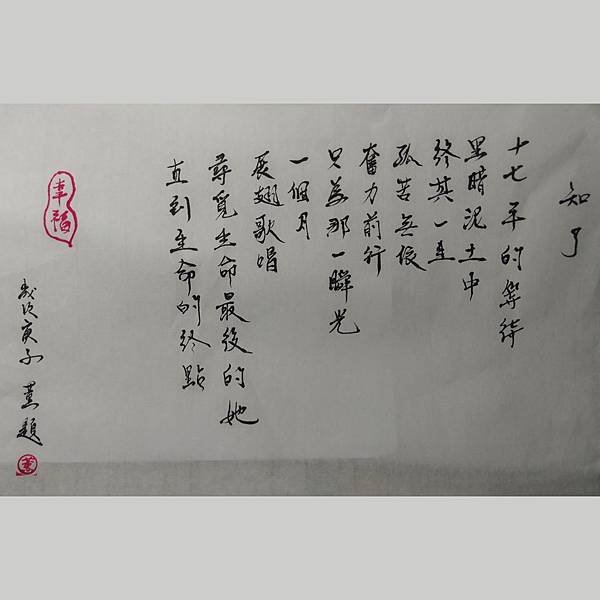 知了
十七年的等待
黑暗泥土中
終其一生
孤苦無依
奮力前行
只為那一瞬光
一個月
展翅歌唱
尋覓生命最後的她
直到生命的終點
歲次庚子 薰題
幸福